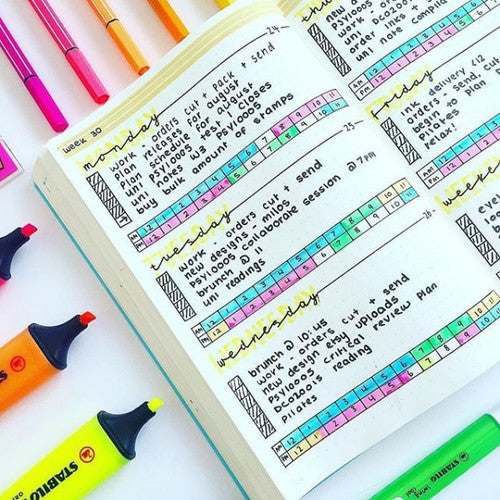 week 30
monday
24
work - orders cut + pack + send
plan releases for august
plan schedule for august
uni PSY10005 test 1 closes
uni notes W3 PSY10005
buy bulk amount of stamps
AM 12 1 2 3 4 5 6 7 8 9 10 11
PM 12 1 2 3 4 5 6 7 8 9 10 11
tuesday
25
work - orders cut + send
new designs - milos
PSY10005 collaborate session @ 7pm
brunch @ 11
uni readings
AM 12 1 2 3 4 5 6 7 8 9 10 11
PM 12 1 2 3 4 5 6 7 8 9 10 11
wednesday
26
brunch @ 10:45
work - orders cut + send
new design etsy uploads
PSY10005 critical review plan
DCO20015 reading
Pilates
AM 12 1 2 3 4 5 6 7 8 9 10 11
PM 12 1 2 3 4 5 6 7 8 9 10 11
work -
new
PSY1000
DCO2001
order inks
uni note compila
AM 12 1 2 3 4
PM 12 1 2 3 4
friday
ink delivery <12
orders - send, cu
begin to plan
Pilates
relax!
AM 12 1 2 3
PM 12 1 2 3
weeke
STABILO
STABILO
STABILO